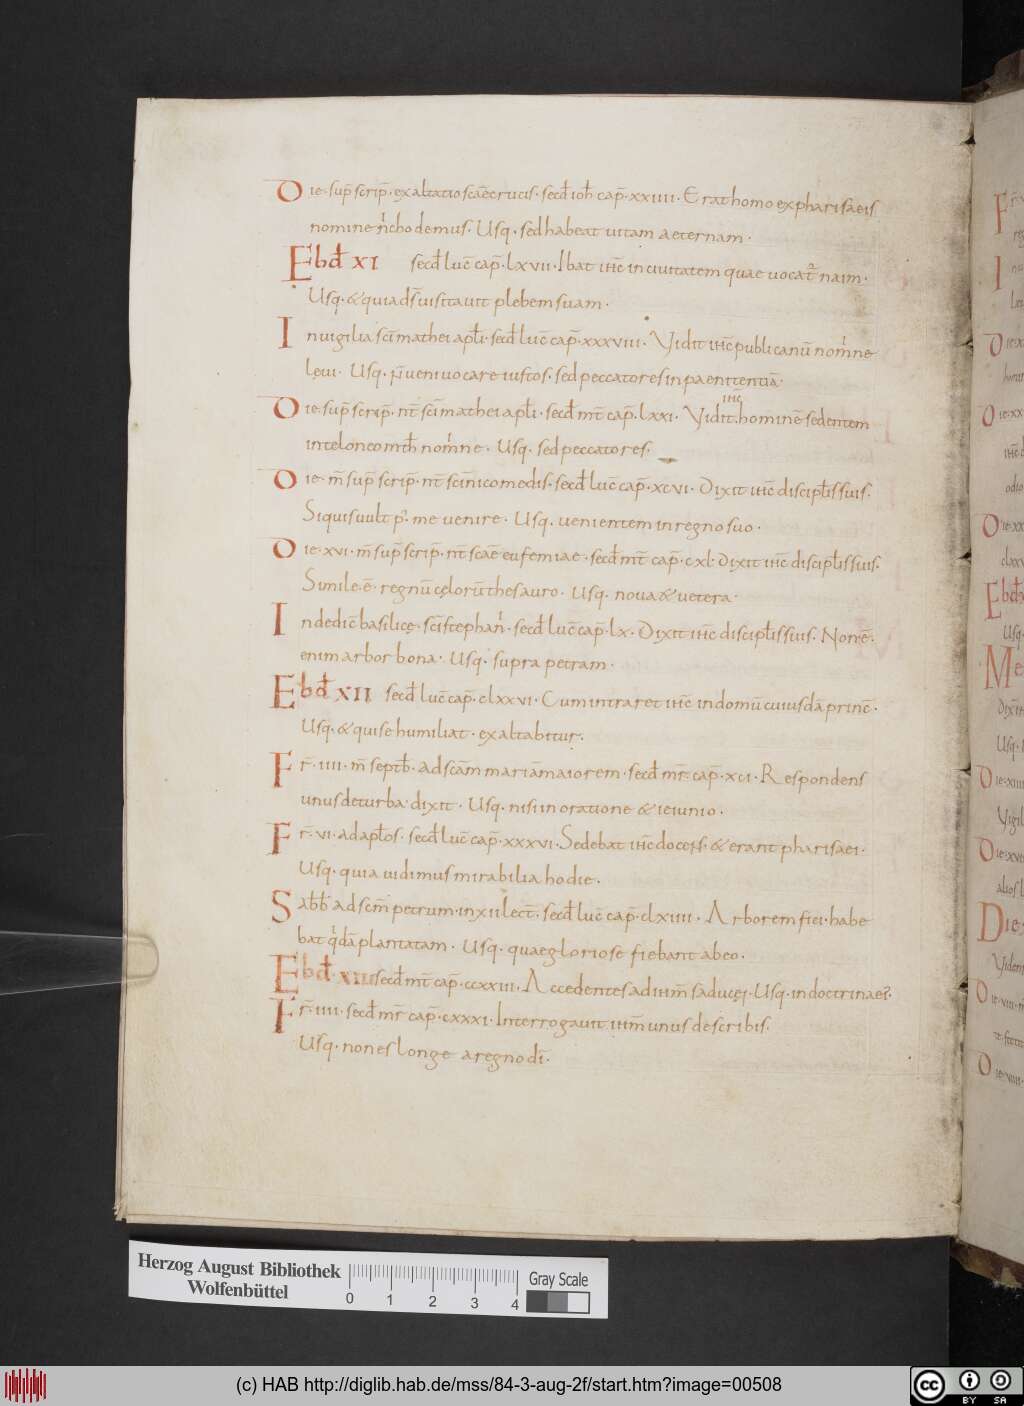 Die· sup̄ scrip̄· exaltatio scāe crucis· secd̄ ioh̄ cap̄· xxiiii· Erat homo ex pharisaeis
nomine nicho demus· Usq· sed habeat uitam aeternam·
Ebd̄ XI secd̄ luc̄ cap̄· lxvii· Ibat ih̄c in ciuitatem quae uocat̄ naim·
Usq· & quia d̄s uisitauit plebem suam·
In uigilia sc̄i mathei apl̄i· secd̄ luc̄ cap̄· xxxviii· Vidit ih̄c publicanū nomine
leui· Usq· n̄ ueni uocare iustos· sed peccatores in paenitentiā·
ih̄c
Die· sup̄ scrip̄· nt̄ sc̄i mathei apl̄i· secd̄ mt̄ cap̄· lxxi· Vidit· hominē sedentem
in teloneo math̄ nomine· Usq· sed peccatores·
Die· m̄ sup̄ scrip̄· nt̄ sc̄i nicomedis· secd̄ luc̄ cap̄· xcvi· Dixit ih̄c discipl̄is suis·
Si quis uult p· me uenire· Usq· uenientem in regno suo·
Die· xvi· m̄ sup̄ scrip̄· nt̄ scāe eufemiae· secd̄ mt̄ cap̄· cxl· Dixit ih̄c discipl̄is suis·
Simile· ē· regnū cęlorū thesauro· Usq· noua & uetera·
In dedic̄ basilicę· sc̄i stephani· secd̄ luc̄ cap̄· lx· Dixit ih̄c discipl̄is suis· Non· ē·
enim arbor bona· Usq· supra petram·
Ebd̄ XII secd̄ luc̄ cap̄· clxxvi· Cum intraret ih̄c in domū cuiusdā princ̄·
Usq· & qui se humiliat· exaltabitur·
Fr̄· iiii· m̄ septb̄· ad scām mariām aiorem· secd̄ mr̄ cap̄· xci· Respondens
unus de turba· dixit· Usq· nisi in oratione & ieiunio·
Fr̄· vi· ad apl̄os· secd̄ luc̄ cap̄· xxxvi· Sedebat ih̄c docens· & erant pharisaei·
Usq· quia uidimus mirabilia hodie·
Sabb̄ ad scm̄ petrum· in xii lect̄· secd̄ luc̄ cap̄· clxiiii· Arborem fici· habe
bat qidā plantatam· Usq· quae gloriose fiebant ab eo·
Ebd̄· XIII secd̄ mt̄ cap̄· ccxxiii· Accedentes ad ih̄m saducęi· Usq· in doctrina ei·
Fr̄· iiii· secd̄ mr̄ cap̄· cxxxi· Interrogauit ih̄m unus de scribis·
Usq· non es longe a regno dī·
Herzog August Bibliothek
Wolfenbüttel
0 1 2 3 4
Gray Scale
(c) HAB http://diglib.hab.de/mss/84-3-aug-2f/start.htm?image=00508
cc BY SA